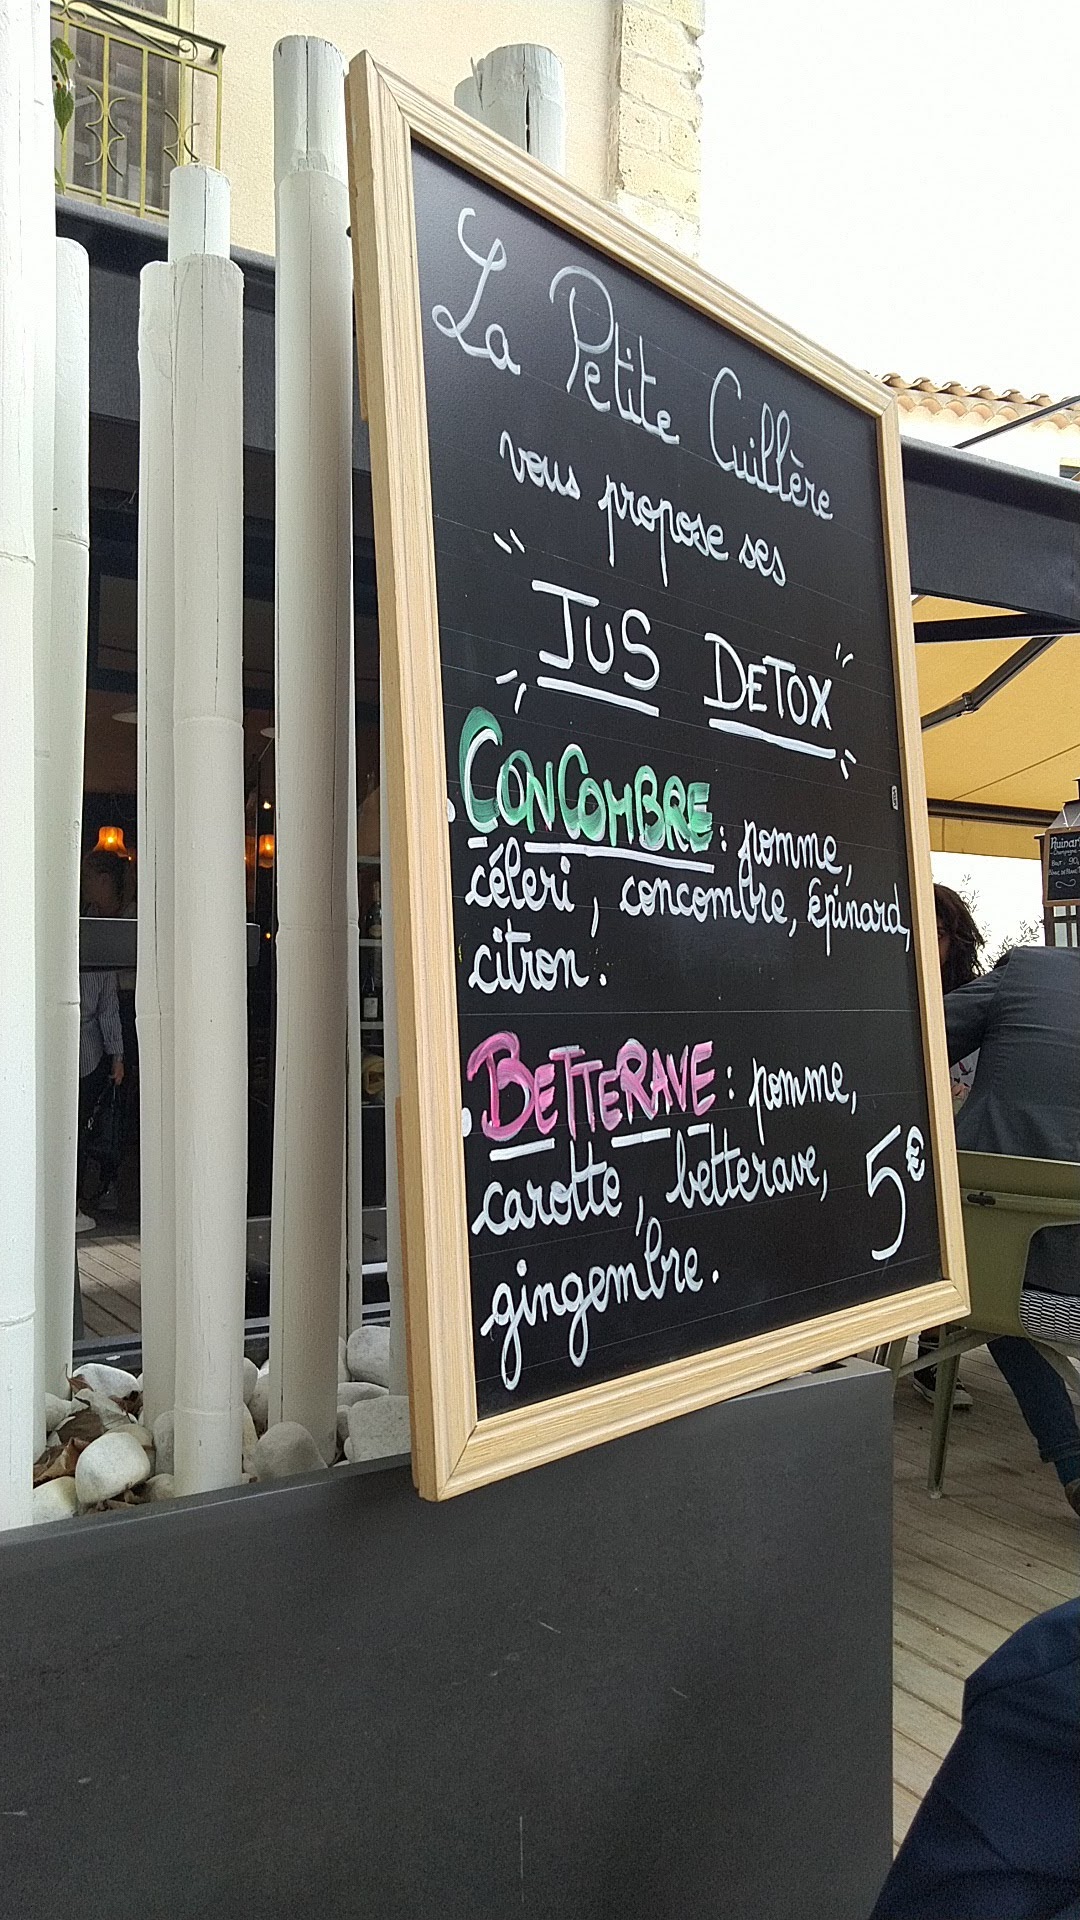 La Petite Cuillère
vous propose ses
JUS DETOX
CONCOMBRE : pomme,
céleri, concombre, épinard,
citron.
BETTERAVE : pomme,
carotte, betterave, 5€
gingembre.
Ruinart